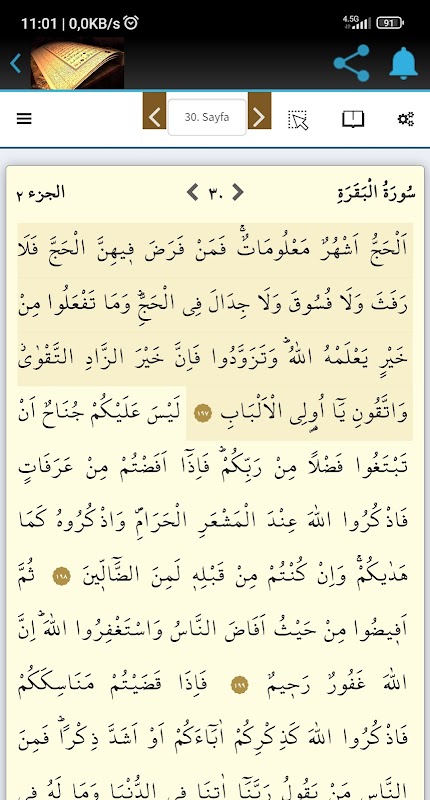 11:01 | 0,0KB/s
4.5G 91
30. Sayfa
سُورَةُ الْبَقَرَةِ ٣٠ الجزء ٢
اَلْحَجُّ اَشْهُرٌ مَعْلُومَاتٌۚ فَمَنْ فَرَضَ ف۪يهِنَّ الْحَجَّ فَلَا
رَفَثَ وَلَا فُسُوقَ وَلَا جِدَالَ فِي الْحَجِّۜ وَمَا تَفْعَلُوا مِنْ
خَيْرٍ يَعْلَمْهُ اللّٰهُۜ وَتَزَوَّدُوا فَاِنَّ خَيْرَ الزَّادِ التَّقْوٰىۘ
وَاتَّقُونِ يَٓا اُو۬لِي الْاَلْبَابِ ١٩٧ لَيْسَ عَلَيْكُمْ جُنَاحٌ اَنْ
تَبْتَغُوا فَضْلًا مِنْ رَبِّكُمْۜ فَاِذَٓا اَفَضْتُمْ مِنْ عَرَفَاتٍ
فَاذْكُرُوا اللّٰهَ عِنْدَ الْمَشْعَرِ الْحَرَامِۖ وَاذْكُرُوهُ كَمَا
هَدٰيكُمْۚ وَاِنْ كُنْتُمْ مِنْ قَبْلِه۪ لَمِنَ الضَّٓالّ۪ينَ ١٩٨ ثُمَّ
اَف۪يضُوا مِنْ حَيْثُ اَفَاضَ النَّاسُ وَاسْتَغْفِرُوا اللّٰهَۜ اِنَّ
اللّٰهَ غَفُورٌ رَح۪يمٌ ١٩٩ فَاِذَا قَضَيْتُمْ مَنَاسِكَكُمْ
فَاذْكُرُوا اللّٰهَ كَذِكْرِكُمْ اٰبَٓاءَكُمْ اَوْ اَشَدَّ ذِكْرًاۜ فَمِنَ
النَّاسِ مَنْ يَقُولُ رَبَّنَٓا اٰتِنَا فِي الدُّنْيَا وَمَا لَهُ فِي